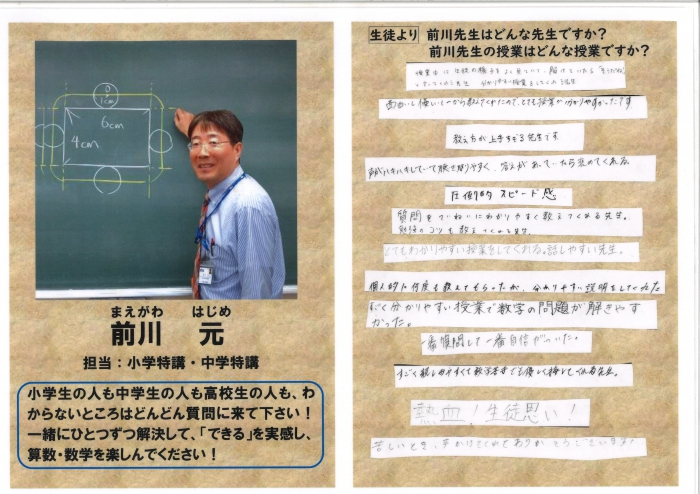 0
1cm
6cm
4cm
まえがわ はじめ
前川 元
担当：小学特講・中学特講
小学生の人も中学生の人も高校生の人も、わ
からないところはどんどん質問に来て下さい！
一緒にひとつずつ解決して、「できる」を実感し、
算数・数学を楽しんでください！
生徒より 前川先生はどんな先生ですか？
前川先生の授業はどんな授業ですか？
授業中に生徒の様子をよく見ていて、
分かりやすい授業をしてくれる先生
面白いし優しい 教えてくれたので、とても授業が分かりやすかったです
教え方が上手すぎる先生です
ハキハキしていて聴き取りやすく、答えがあっていたら褒めてくれる
圧倒的スピード感
質問をていねいにわかりやすく教えてくれる先生。
勉強のコツも教えてくれる先生。
とてもわかりやすい授業をしてくれる。話しやすい先生。
個人的に何度も教えてもらったが、分かりやすい説明をしていただいた
すごく分かりやすい授業で数学の問題が解きやす
かった。
一番質問して一番自信がついた。
すごく親しみやすくて 優しく接してくれる先生。
熱血！生徒思い！
苦しいとき、声かけてくれてありがとうございます